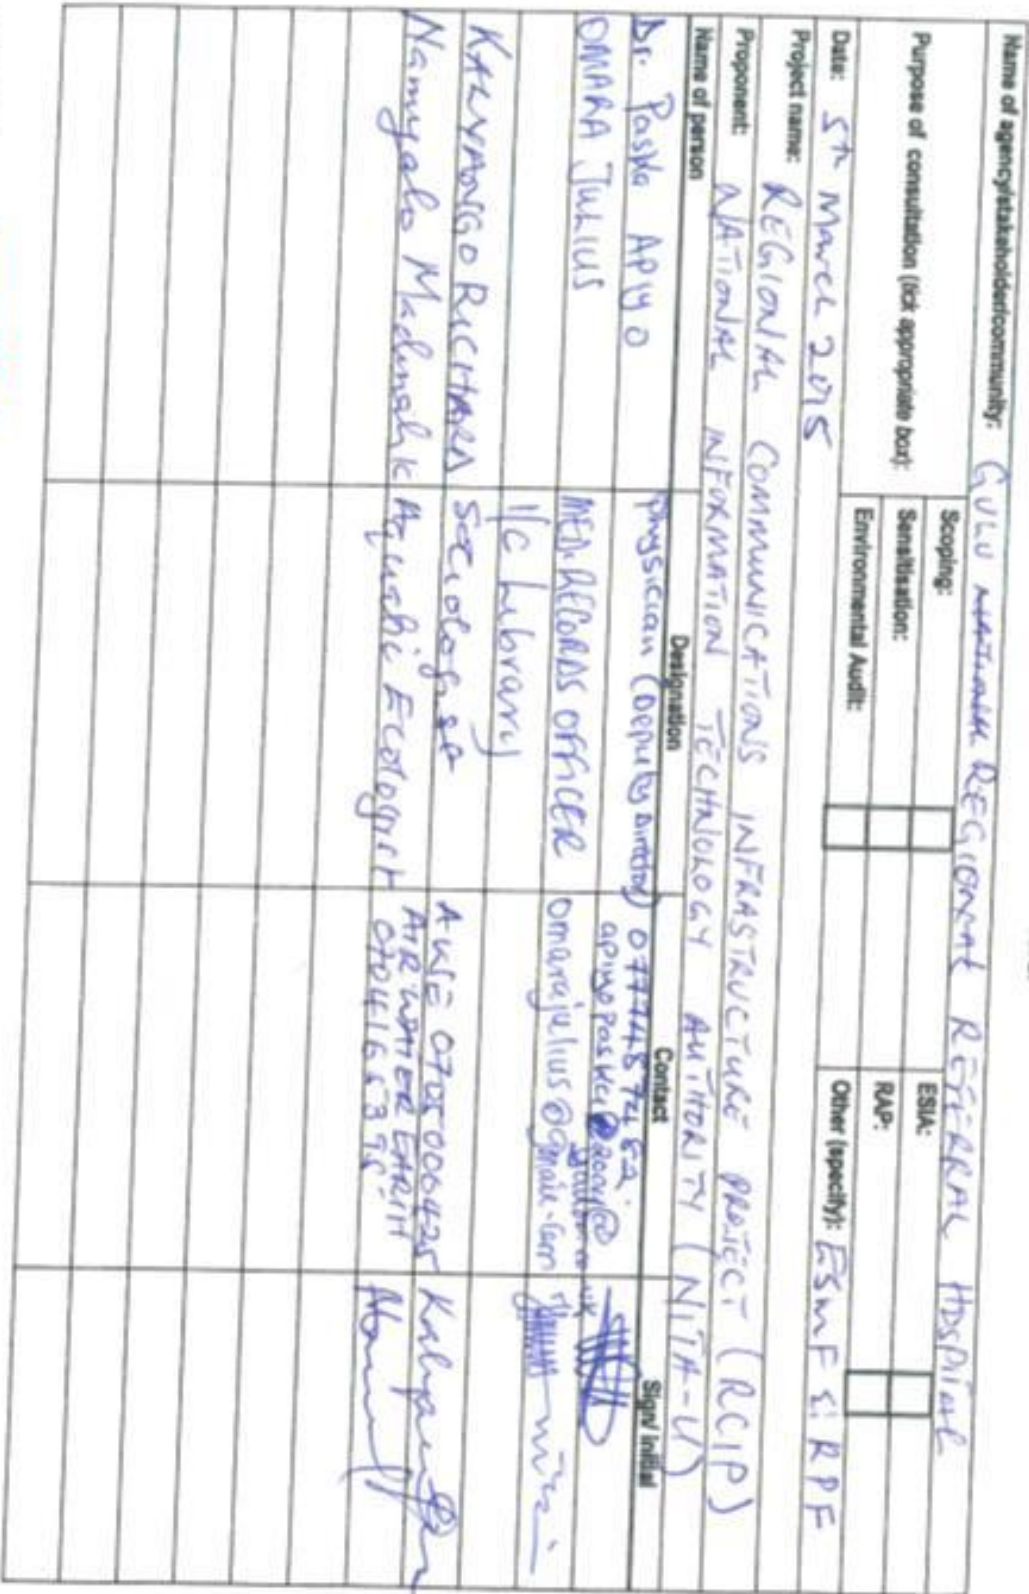 Name of agency/stakeholder/community: GULU REGIONAL REFERRAL HOSPITAL
Purpose of consultation (tick appropriate box):
Scoping: ESIA:
Sensitisation: RAP:
Environmental Audit: Other (specify): ESMF & RPF
Date: 5th March 2015
Project name: REGIONAL COMMUNICATIONS INFRASTRUCTURE PROJECT (RCIP)
Proponent: NATIONAL INFORMATION TECHNOLOGY AUTHORITY (NITA-U)
Name of person Designation Contact Sign/ Initial
Dr. Paska Apiyo Physician (Deputy Director)
OMARA JULIUS MED. RECORDS OFFICER omarajulius@gmail.com
I/C Library
KALYANGO RICHARD Sociologist AWE 0705006425
AIR WATER EARTH
Aquatic Ecologist 0704165395